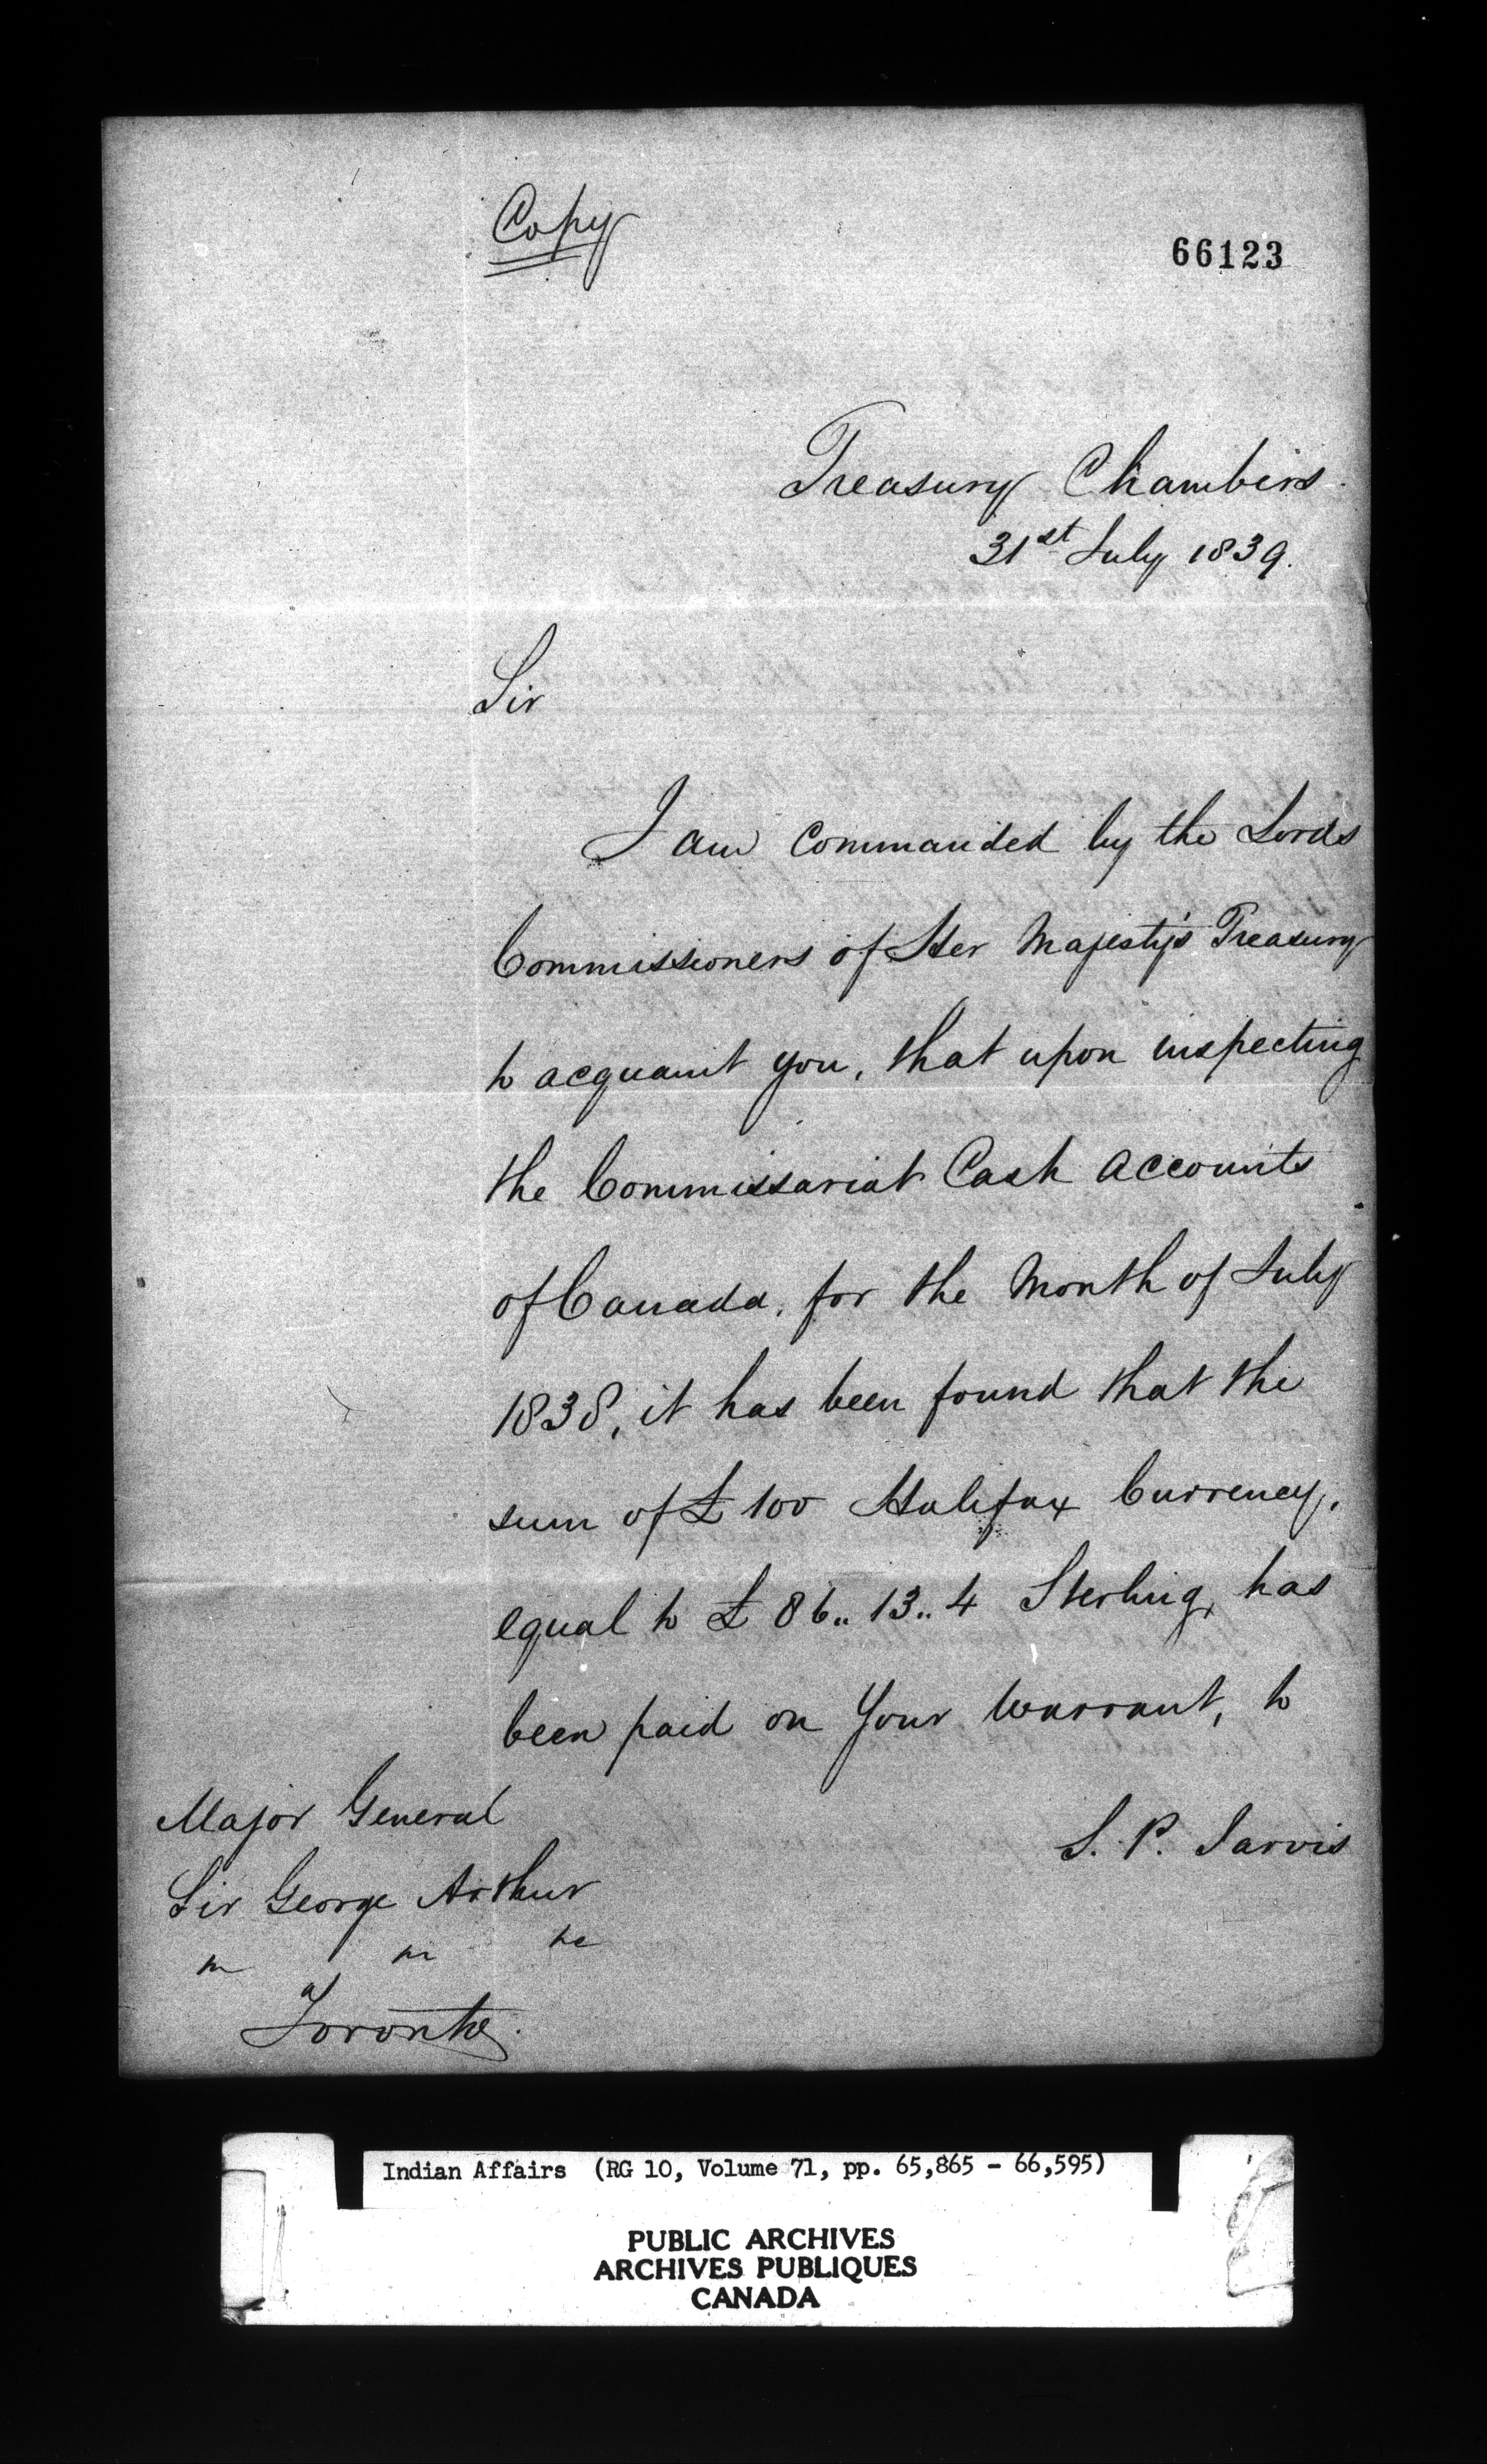 Copy
66123
Treasury Chambers.
31st July 1839.
Sir
I am Commanded by the Lords
Commissioners of Her Majesty's Treasury
to acquaint you, that upon inspecting
the Commissariat Cash Accounts
of Canada, for the Month of July
1838, it has been found that the
sum of £100 Halifax Currency,
equal to £86..13..4 Sterling, has
been paid on Your Warrant, to
S. P. Jarvis
Major General
Sir George Arthur
Toronto.
Indian Affairs (RG 10, Volume 71, pp. 65,865 - 66,595)
PUBLIC ARCHIVES
ARCHIVES PUBLIQUES
CANADA